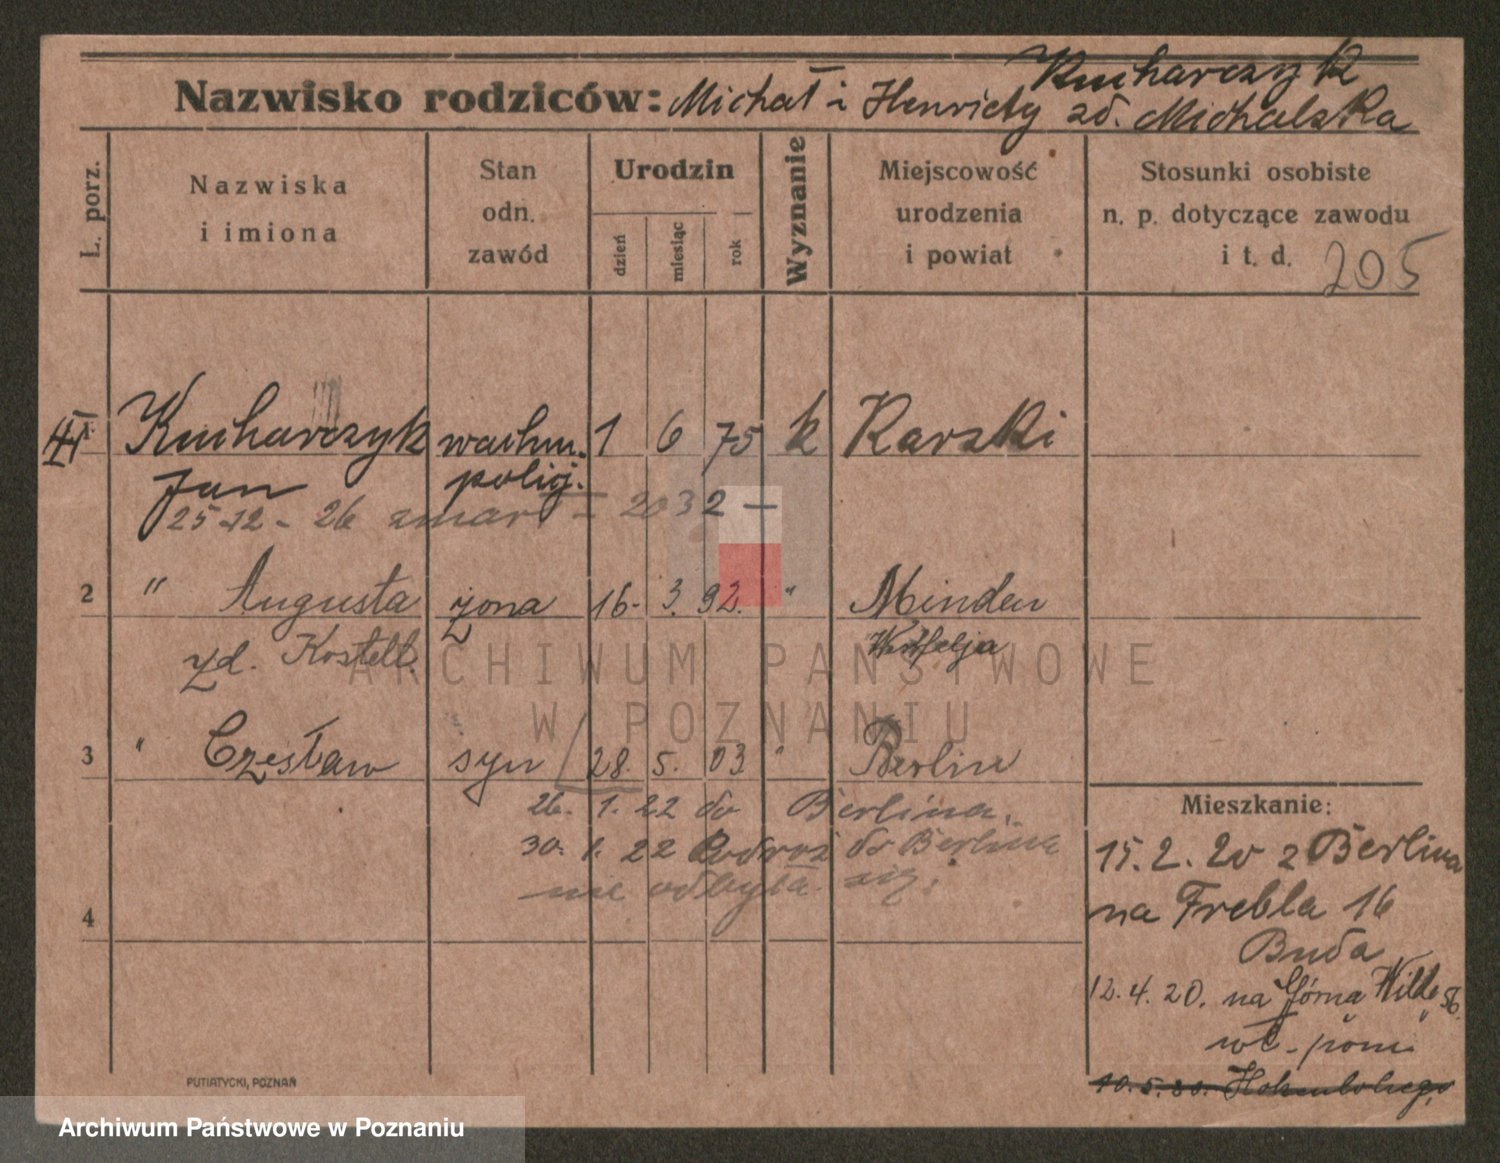 Kucharczyk
Nazwisko rodziców: Michał i Henriety zd. Michalska
Ł. porz.
Nazwiska
i imiona
Stan
odn.
zawód
Urodzin
dzień
miesiąc
rok
Wyznanie
Miejscowość
urodzenia
i powiat
Stosunki osobiste
n. p. dotyczące zawodu
i t. d.
205
1 Kucharczyk wachm. 1 6 75 k Karski
Jan policj.
25-12-26 zmarł - 2032 -
2 " Augusta żona 16. 3. 92. " Minden
zd. Kostelt. Westfalja
ARCHIWUM PAŃSTWOWE
W POZNANIU
3 " Czesław syn 28. 5. 03 " Berlin
26. 1. 22 do Berlina.
30. 1. 22 Podróż do Berlina
nie odbyła się.
4
Mieszkanie:
15. 2. 20 z Berlina
na Frebla 16
Buda
12. 4. 20. na Górna Wilde 56.
10. 5. 20.
PUTIATYCKI, POZNAŃ
Archiwum Państwowe w Poznaniu